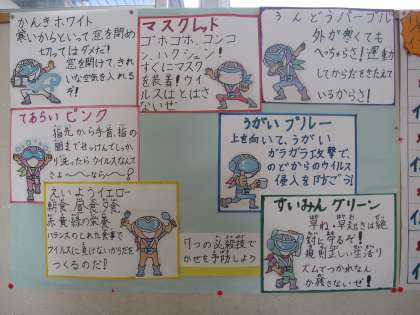 かんきホワイト
寒いからといって窓を閉め
切ってはダメだ!
窓を開けて、きれ
いな空気を入れる
ぞ!
マスクレッド
ゴホゴホ、コンコ
ン、ハクション!
すぐにマスク
を装着!ウイ
ルスはとばさ
ないぜ
うんどうパープル
外が寒くても
へっちゃらさ!運動
してからだをきたえて
いるからさ!
てあらいピンク
指先から手首、指の
間までせっけんでしっか
り洗ったらウイルスなんて
さよ〜なら〜!
うがいブルー
上を向いて、うがい
ガラガラ攻撃で、
のどからのウイルス
侵入を防ごう!
えいようイエロー
朝食、昼食、夕食
赤黄緑の栄養
バランスのとれた食事で
ウイルスに負けないからだを
つくるのだ!
7つの必殺技で
かぜを予防しよう
すいみんグリーン
早ね・早起きは絶
対に守るぞ!
規則正しい生活リ
ズムでつかれなん
か残さないぜ!